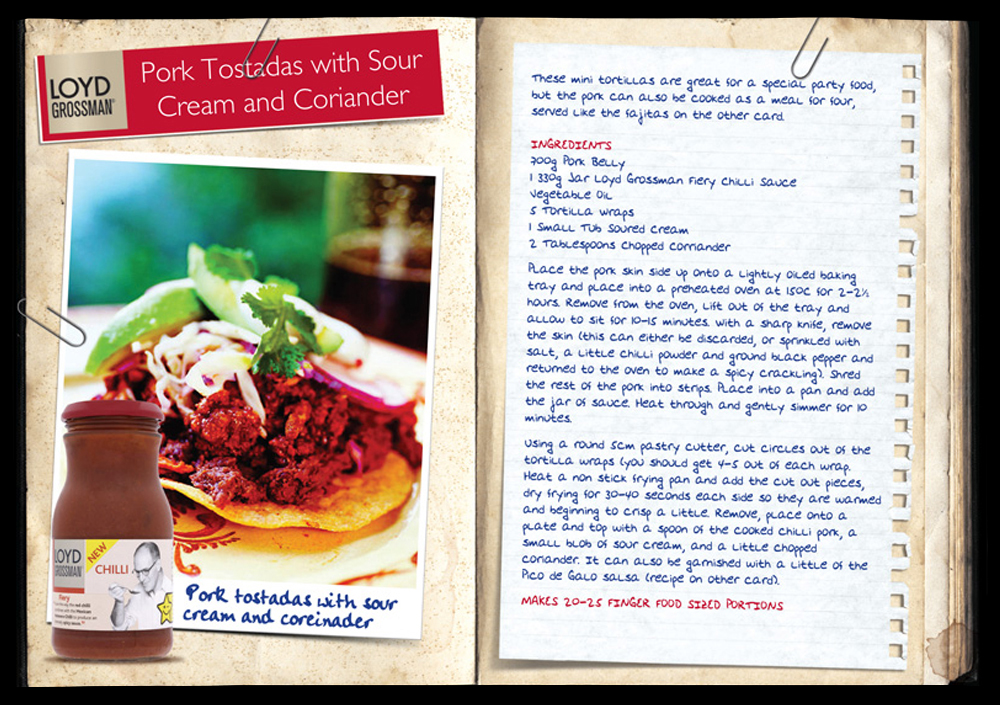 LOYD
GROSSMAN
Pork Tostadas with Sour
Cream and Coriander
LOYD
GROSSMAN
NEW
CHILLI
Fiery
Pork tostadas with sour
cream and coreinader
These mini tortillas are great for a special party food,
but the pork can also be cooked as a meal for four,
served like the fajitas on the other card.
INGREDIENTS
700g Pork Belly
1 330g Jar Loyd Grossman Fiery Chilli Sauce
Vegetable Oil
5 Tortilla wraps
1 Small Tub Soured Cream
2 Tablespoons Chopped Corriander
Place the pork skin side up onto a lightly oiled baking
tray and place into a preheated oven at 150C for 2-2½
hours. Remove from the oven, lift out of the tray and
allow to sit for 10-15 minutes. With a sharp knife, remove
the skin (this can either be discarded, or sprinkled with
salt, a little chilli powder and ground black pepper and
returned to the oven to make a spicy crackling). Shred
the rest of the pork into strips. Place into a pan and add
the jar of sauce. Heat through and gently simmer for 10
minutes.
Using a round 5cm pastry cutter, cut circles out of the
tortilla wraps (you should get 4-5 out of each wrap.
Heat a non stick frying pan and add the cut out pieces,
dry frying for 30-40 seconds each side so they are warmed
and beginning to crisp a little. Remove, place onto a
plate and top with a spoon of the cooked chilli pork, a
small blob of sour cream, and a little chopped
coriander. It can also be garnished with a little of the
Pico de Galo salsa (recipe on other card).
MAKES 20-25 FINGER FOOD SIZED PORTIONS